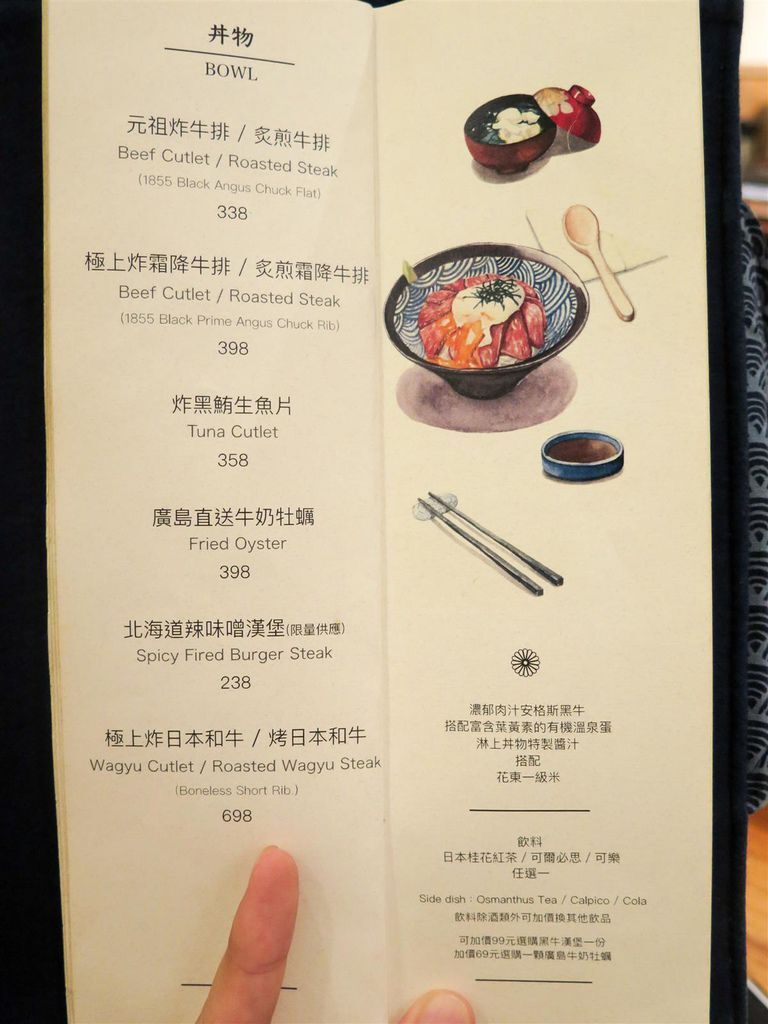 丼物
BOWL
元祖炸牛排 / 炙煎牛排
Beef Cutlet / Roasted Steak
(1855 Black Angus Chuck Flat)
338
極上炸霜降牛排 / 炙煎霜降牛排
Beef Cutlet / Roasted Steak
(1855 Black Prime Angus Chuck Rib)
398
炸黑鮪生魚片
Tuna Cutlet
358
廣島直送牛奶牡蠣
Fried Oyster
398
北海道辣味噌漢堡(限量供應)
Spicy Fired Burger Steak
238
極上炸日本和牛 / 烤日本和牛
Wagyu Cutlet / Roasted Wagyu Steak
(Boneless Short Rib.)
698
濃郁肉汁安格斯黑牛
搭配富含葉黃素的有機溫泉蛋
淋上丼物特製醬汁
搭配
花東一級米
飲料
日本桂花紅茶 / 可爾必思 / 可樂
任選一
Side dish : Osmanthus Tea / Calpico / Cola
飲料除酒類外可加價換其他飲品
可加價99元選購黑牛漢堡一份
加價69元選購一顆廣島牛奶牡蠣